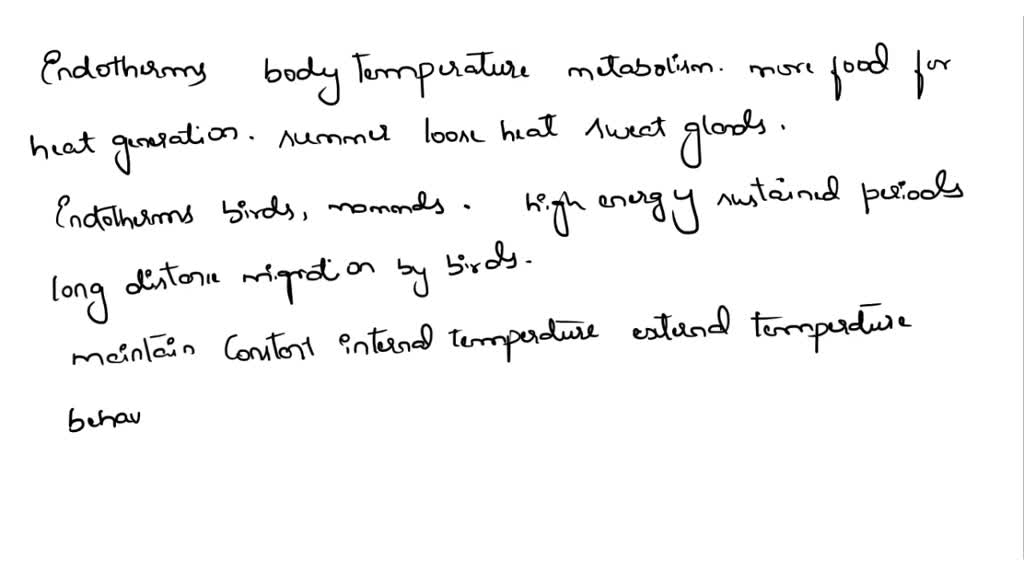 Endotherms body temperature metabolism. more food for
heat generation. summer loose heat sweat glands.
Endotherms birds, mammals. high energy sustained periods
long distance migration by birds.
maintain constant internal temperature external temperature
behav